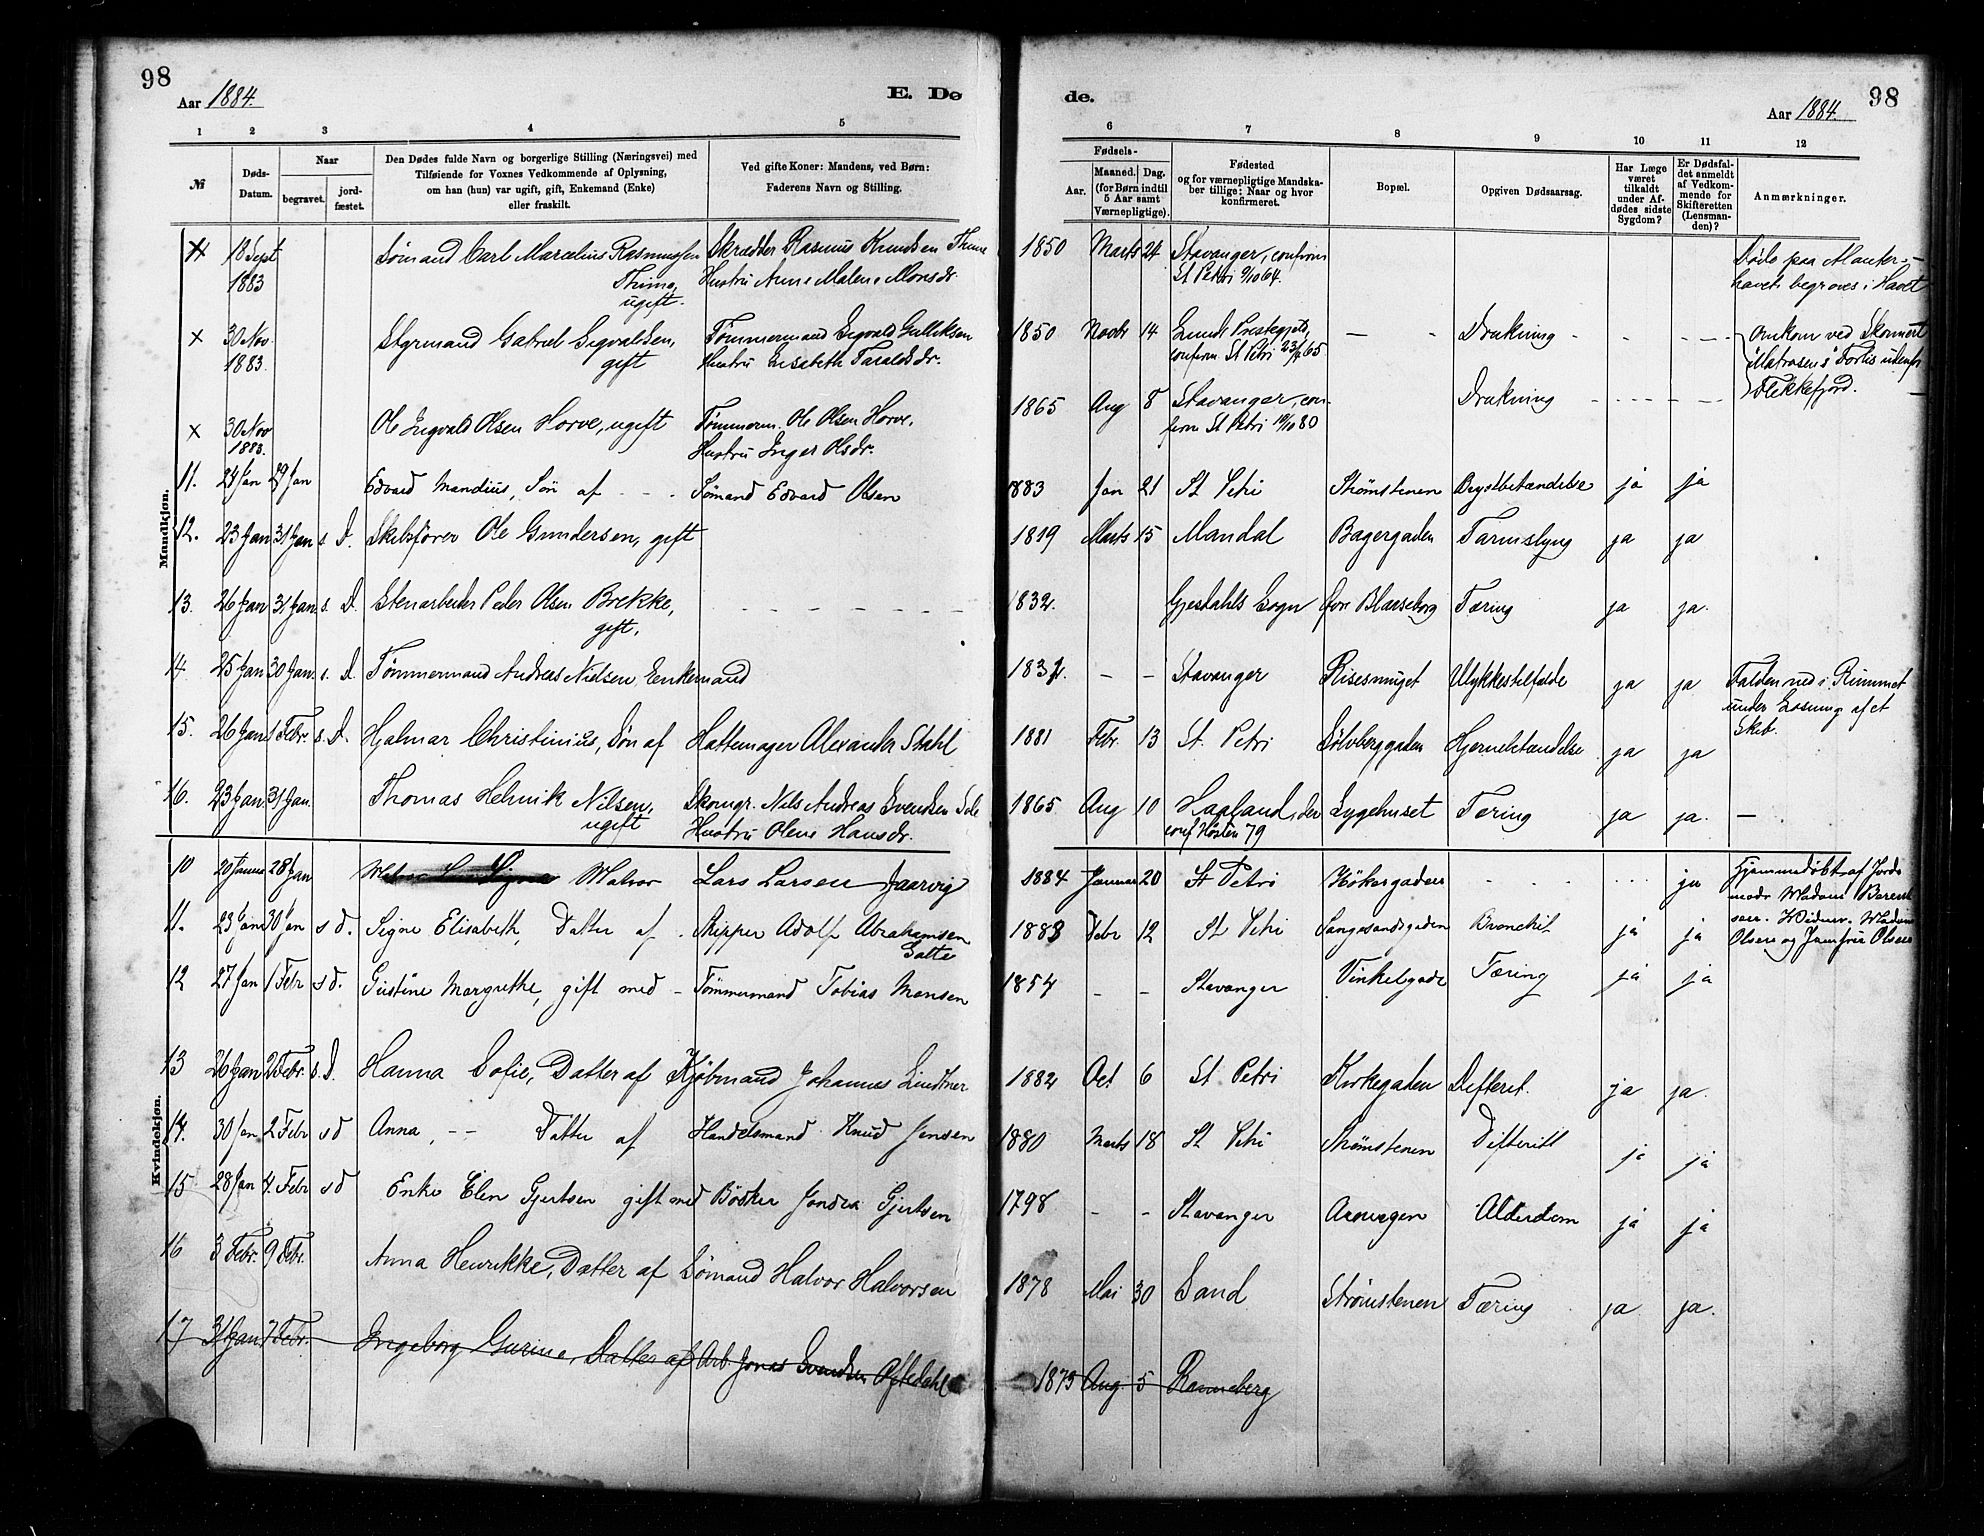 98
Aar 1884.
E. Dø
1 2 3 4 5
№
Døds-Datum.
Naar
begravet.
jord-fæstet.
Den Dødes fulde Navn og borgerlige Stilling (Næringsvei) med
Tilføiende for Voxnes Vedkommende af Oplysning,
om han (hun) var ugift, gift, Enkemand (Enke)
eller fraskilt.
Ved gifte Koner: Mandens, ved Børn:
Faderens Navn og Stilling.
Mandkjøn.
18 Sept Sømand Carl Marcelius Rasmussen Skrædder Rasmus Knudsen Thime
1883 Thime, Hustru Anne Malene Monsdr.
ugift.
x 30 Nov Styrmand Gabriel Sigvaldsen, Tømmermand Sigvald Gulliksen
1883. gift Hustru Elisabeth Taraldsdr.
x 30 Nov Ole Ingvald Olsen Horve, ugift Tømmerm. Ole Olsen Horve.
1883. Hustru Inger Olsdr.
11. 24 Jan 29 Jan Edvard Mandius, Søn af - - . Sømand Edvard Olsen
12. 23 Jan 31 Jan s. D. Skibsfører Ole Gundersen, gift
13. 26 Jan 31 Jan. s. D. Stenarbeider Peder Olsen Brekke,
gift.
14. 25 Jan 30 Jan. s. D. Tømmermand Andreas Nielsen Enkemand
15. 26 Jan 1 Febr. s. D. Hjalmar Christinius, Søn af Hattemager Alexander Stahl
16. 23 Jan. 31 Jan. Thomas Helmik Nilsen, Skomgr. Nils Andreas Svendsen Sele
ugift Hustru Olene Hansdr.
Kvindekjøn.
10 20 Januar 28 Jan Malvor Lars Larsen Jaarvig
11. 23 Jan 30 Jan s d. Signe Elisabeth, Datter af . Skipper Adolf Abrahamsen
Gatte
12 27 Jan 1 Febr s d. Gustine Margrethe, gift med - Tømmermand Tobias Monsen
13 26 Jan 2 Febr. s. D. Hanna Sofie, Datter af Kjøbmand Johannes Lindtner
14. 30 Jan 2 Febr s d Anna, - - Datter af Handelsmand Knud Jensen
15 28 Jan 4. Febr s d Enke Elen Gjertsen gift med Bødker Gjertsen
16 3 Febr. 9 Febr. Anna Henrikke, Datter af Sømand Halvor Halvorsen
17 31 Jan 7 Febr. Ingeborg Gurine, Datter af Arb. Jonas Svendsen Oftedahl
98
Aar 1884.
de.
6 7 8 9 10 11 12
Fødsels-
Aar.
Maaned. Dag.
(for Børn indtil
5 Aar samt
Værnepligtige).
Fødested
og for værnepligtige Mandska-
ber tillige: Naar og hvor
konfirmeret.
Bopæl.
Opgiven Dødsaarsag.
Har Læge
været
tilkaldt
under Af-
dødes sidste
Sygdom?
Er Dødsfal-
det anmeldt
af Vedkom-
mende for
Skifteretten
(Lensman-
den)?
Anmærkninger.
1850 Marts 24 Stavanger, confirm Døde paa
St Petri 9/10 64. havet, begraves i Havet
1850 Novbr 14 Lunds Prestegjeld, — - Drukning - - - - Omkom ved Skonnert
confirm St Petri 65 "Matrosens" Forlis udenfor
Flekkefjord.
1865 Aug 8 Stavanger, con- Drukning - - - - - -
firm St Petri 10/10 80
1883 Jan 21 St Petri Strømstenen Brystbetændelse ja ja
1819 Marts 15 Mandal Bagergaden Tarmslyng ja ja
1832. Gjesdahls Sogn Øvre Blaaseborg Tæring ja ja.
1832. - - Stavanger Risesmuget Ulykkestilfælde ja ja Falden ned i Rummet
under Losning af et
Skib.
1881 Febr. 13 St. Petri Sølvberggaden Hjernebetændelse ja ja
1865 Aug 10 Sygehuset Tæring ja ja. —
conf Høsten 79
1884 Januar 20 St Petri Hökergaden - - - ja Hjemmedøbt af Jorde
moder Madam Berent
sen. Vidner. Madam
Olsen og Jomfru Olsen
1883 Debr 12 St Petri Langesandsgaden Bronchit ja ja
1854 - - Stavanger Vinkelgade Tæring ja ja
1882 Oct 6 St Petri Kirkegaden Difterit. ja ja.
1880 Marts 18 St Petri Strømstenen Difterit ja ja
1798 - - Stavanger Arnevegen Alderdom ja ja
1878 Mai 30 Sand Strømstenen Tæring ja ja.
1873 Aug. 5 Ranneberg